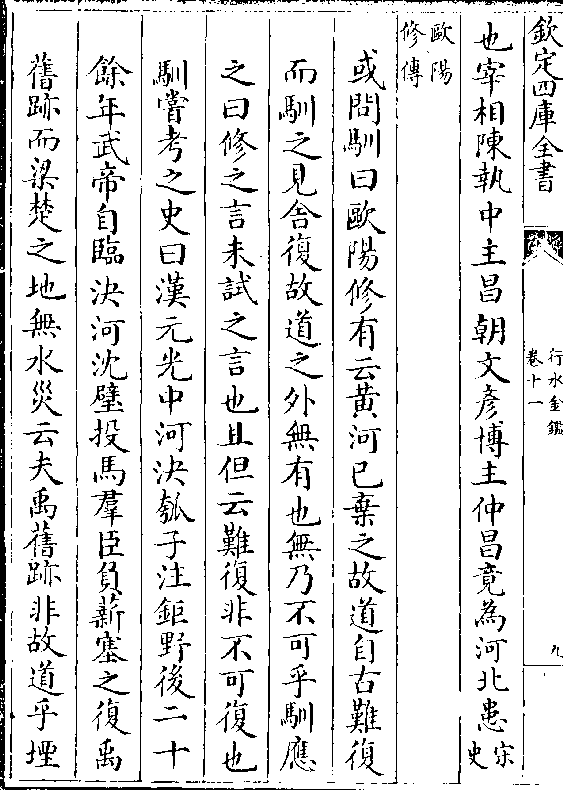 欽定四庫全書
行水金鑑
卷十一
九
也宰相陳執中主昌朝文彥博主仲昌竟為河北患宋史
歐陽修傳
或問馴曰歐陽修有云黄河已棄之故道自古難復
而馴之見舍復故道之外無有也無乃不可乎馴應
之曰修之言未試之言也且但云難復非不可復也
馴嘗考之史曰漢元光中河決瓠子注鉅野後二十
餘年武帝自臨決河沈璧投馬羣臣負薪塞之復禹
舊跡而梁楚之地無水災云夫禹舊跡非故道乎堙